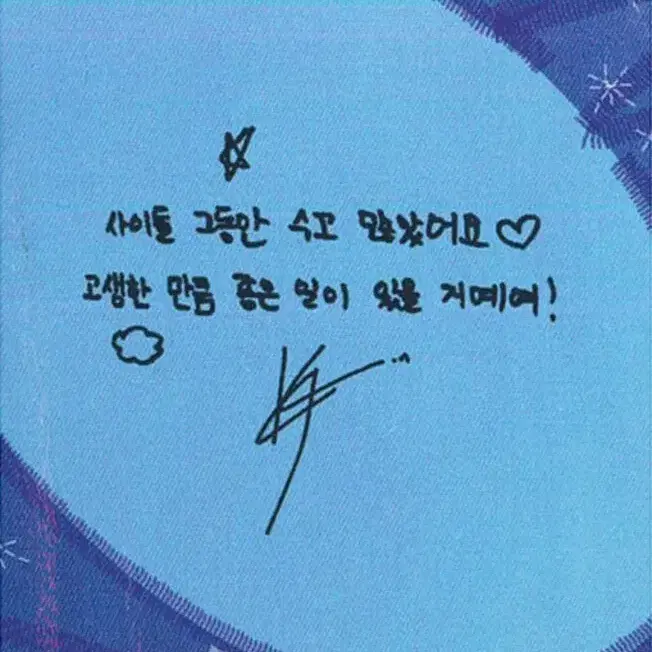 사이들 그동안 수고 많았어요♡
고생한 만큼 좋은 일이 있을 거예여!